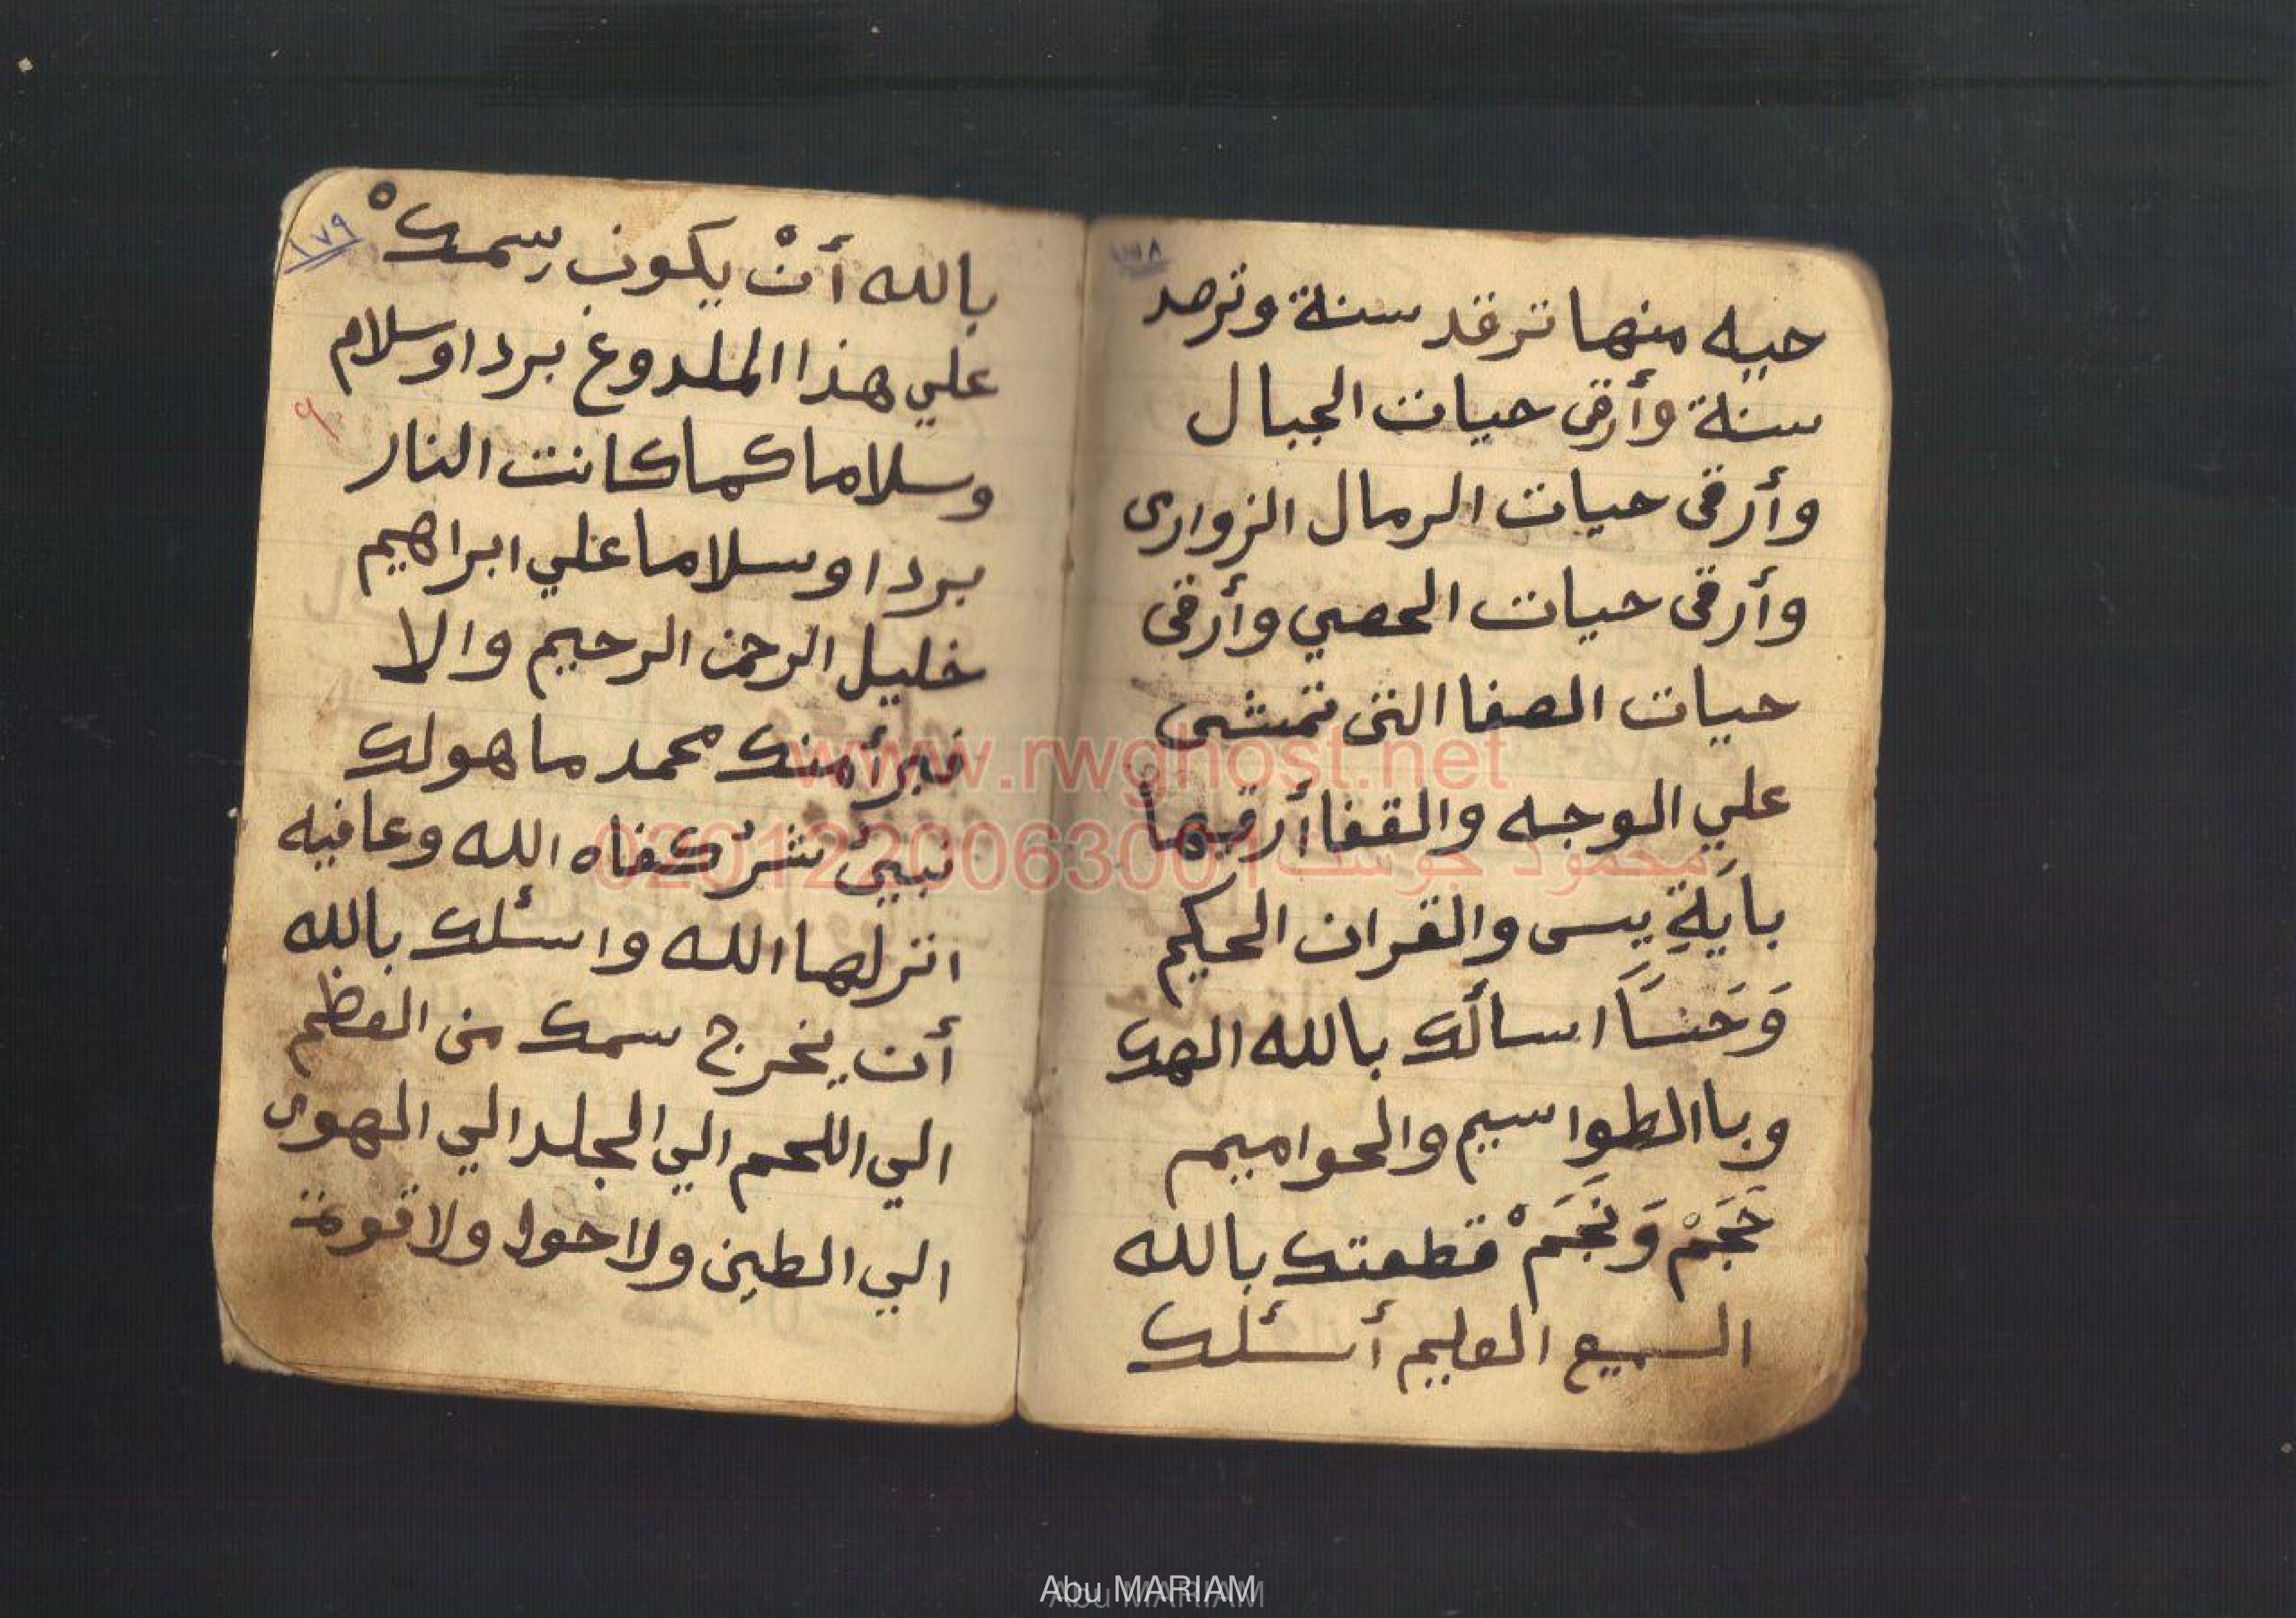 ١٧٨
حيه منها ترقد سنة وترصد
سنة وأرقى حيات الجبال
وأرقى حيات الرمال الزوارى
وأرقى حيات الحصي وأرقى
حيات الصفا التى تمشى
علي الوجه والقفا أرقيها
بايَةِ يس والقران الحكيم
اسالك بالله الهك
وباالطواسيم والحواميم
قطعتك بالله
السميع العليم أسئلك
١٧٩
بالله أنْ يكون سمك
علي هذا الملدوغ بردا وسلام
٩
وسلاما كما كانت النار
بردا وسلاما علي ابراهيم
خليل الرحمن الرحيم والا
نبرأ منك محمد ما هو لك
كفاه الله وعافيه
انزلها الله واسئلك بالله
أن يخرج سمك من العظم
الي اللحم الي الجلد الي الهوى
الي الطين ولا حول ولا قوة
www.rwghost.net
محمود جوست 0201220063001
Abu MARIAM